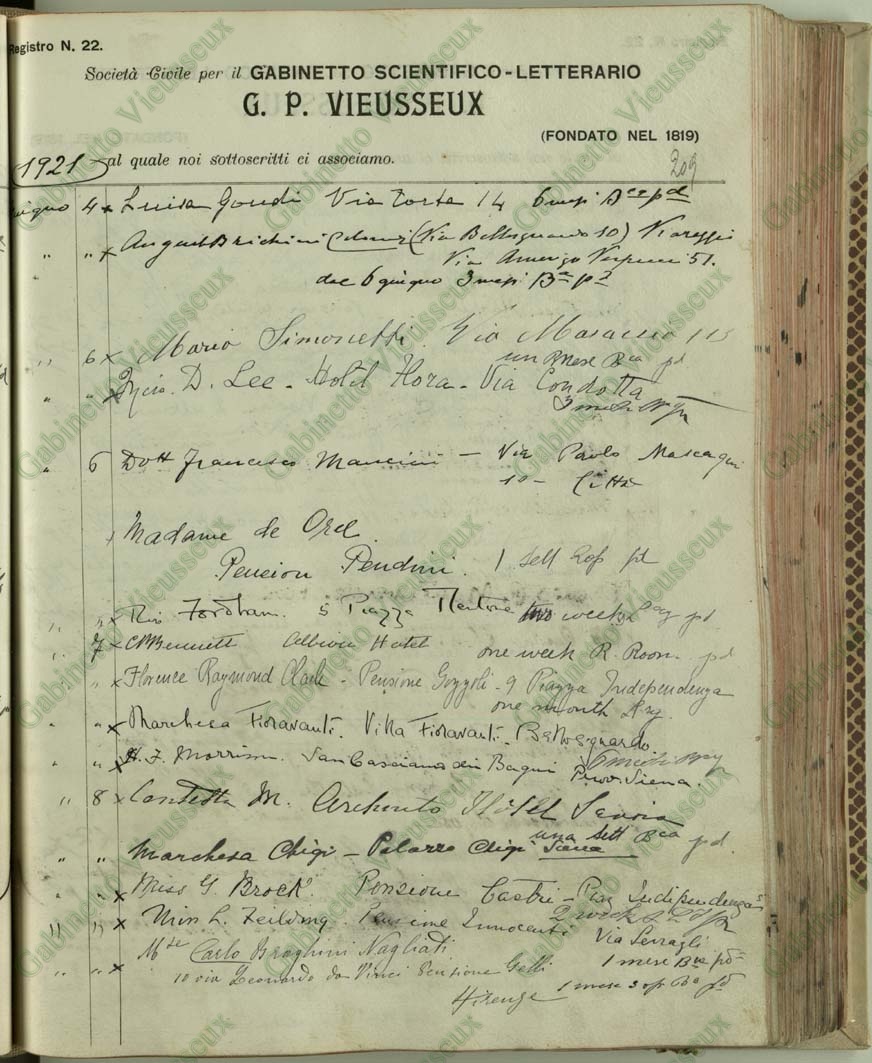 Registro N. 22.
Società Civile per il GABINETTO SCIENTIFICO-LETTERARIO
G. P. VIEUSSEUX
(FONDATO NEL 1819)
1921 al quale noi sottoscritti ci associamo.
209
4 x Luisa Gondi Via Torta 14 6 mesi pd
" " x August Brichini (Via Bellosguardo 10) Viareggio
Via Amerigo Vespucci 51.
dal 6 giugno 3 mesi
" 6 x Mario Simonetti. Via Masaccio
un mese Bca pd
" " x D. Lee - Hotel Flora - Via Condotta
3 mesi
" 6 Dott Francesco Mancini - Via Paolo Mascagni
10 - Città
Madame de Orel
Pension Pendini. 1 sett pd
" " x Fordham 5 Piazza two weeks pd
" 7 x Bennett Albion Hotel one week R. Room pd
" " x Florence Raymond Clark - Pensione Gozzoli - 9 Piazza Independenza
one month
" " x Marchesa Fioravanti. Villa Fioravanti. Bellosguardo.
" " x H. J. Morrison. San Casciano dei Bagni Prov. Siena.
" 8 x Contessa M. Archinto Hotel Savoia
una sett Bca pd.
" " Marchesa Chigi - Palazzo Chigi Siena
" " x Miss G. Brock. Pensione Castri - Piaz Indipendenza 5
2 weeks
" " x Miss L. Feilding. Pensione Innocenti Via Serragli
1 mese pd
" " x Carlo Braghini Nagliati
10 via Leonardo da Vinci Pensione Gelli
Firenze 1 mese pd